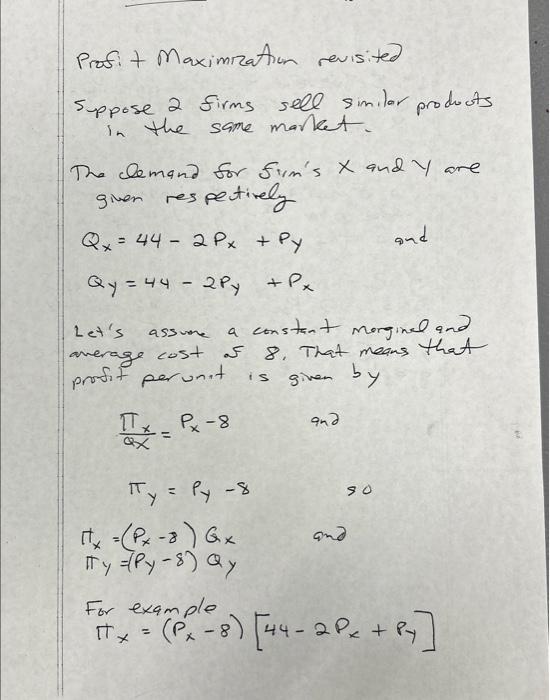 Profit Maximization revisited
Suppose 2 firms sell similar products
in the same market.
The demand for firm's X and Y are
given respectively
Qx = 44 - 2Px + Py and
Qy = 44 - 2Py + Px
Let's assume a constant marginal and
average cost of 8. That means that
profit per unit is given by
Πx/Qx = Px - 8 and
Πy = Py - 8 so
Πx = (Px - 8) Qx and
Πy = (Py - 8) Qy
For example
Πx = (Px - 8) [44 - 2Px + Py]